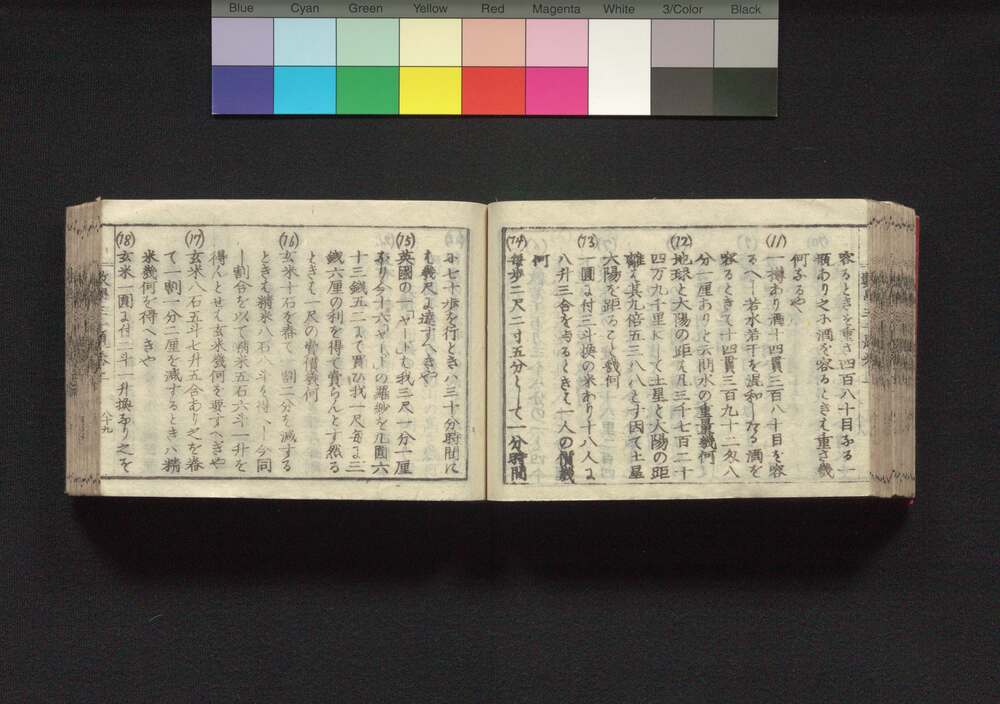 Blue Cyan Green Yellow Red Magenta White 3/Color Black
容るときを重さ四百八十目なる一
瓶あり之に酒を容るときハ重さ幾
何なるや
(11)
一樽あり酒十四貫三百八十目を容
るへし若水若干を混和したる酒を
容るときハ十四貫三百九十二匁八
分一厘ありと云問水の重量幾何
(12)
地球と大陽の距離凡三千七百二十
四万九千里にして土星と大陽の距
離ハ其九倍五三八八とす因て土星
大陽を距ること幾何
(13)
一圓に付三斗換の米あり十八人に
八升三合を与るときハ一人の價幾
何
(14)
毎歩二尺二寸五分にして一分時間
に七十歩を行ときハ三十分時間に
ハ幾尺に達すへきや
(15)
英國の一「ヤード」ハ我三尺一分一厘
なり今十六「ヤード」の羅紗を九圓六
十三銭五りにて買ひ我一尺毎に三
銭六厘の利を得て賣らんとす然る
ときハ一尺の賣價幾何
(16)
玄米十石を舂て一割二分を減する
ときハ精米八石八斗を得へし今同
し割合を以て精米五石六斗一升を
得んとせハ玄米幾何を要すへきや
(17)
玄米八石五斗七升五合あり之を舂
て一割一分二厘を減するときハ精
米幾何を得へきや
(18)
玄米一圓に付二斗一升換なり之を
八十九